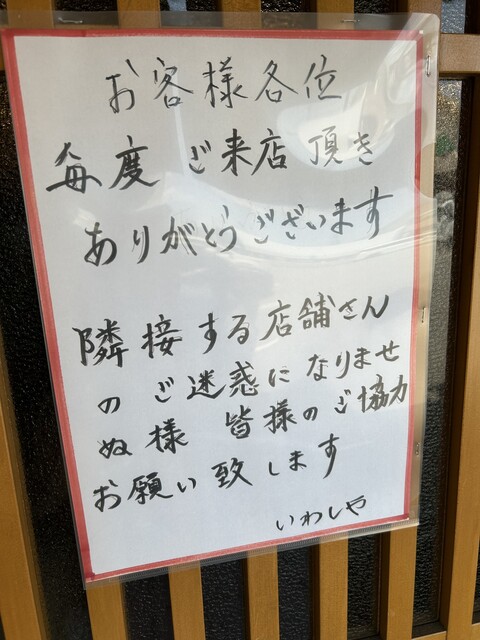 お客様各位
毎度ご来店頂き
ありがどうございます
隣接する店舗さん
のご迷惑になりませ
ぬ様 皆様のご協力
お願い致します
いわしや